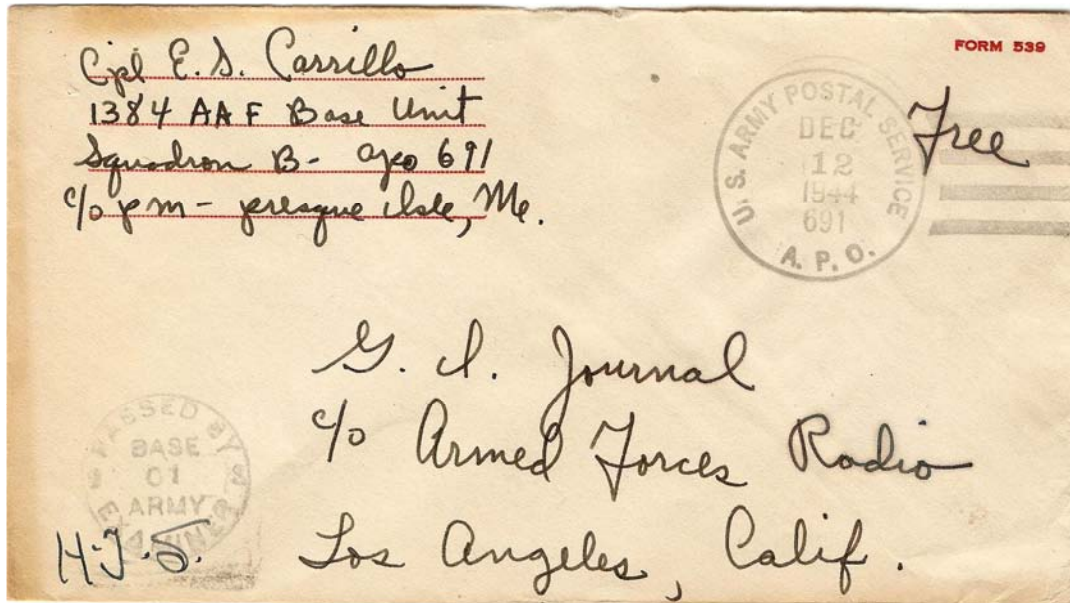 Cpl E. S. Carrillo
1384 AAF Base Unit
Squadron B- apo 691
c/o pm - presque isle, Me.
FORM 539
U. S. ARMY POSTAL SERVICE
DEC
12
1944
691
A. P. O.
Free
G. I. Journal
c/o Armed Forces Radio
Los Angeles, Calif.
PASSED BY
BASE
01
ARMY
EXAMINER
H.J.S.